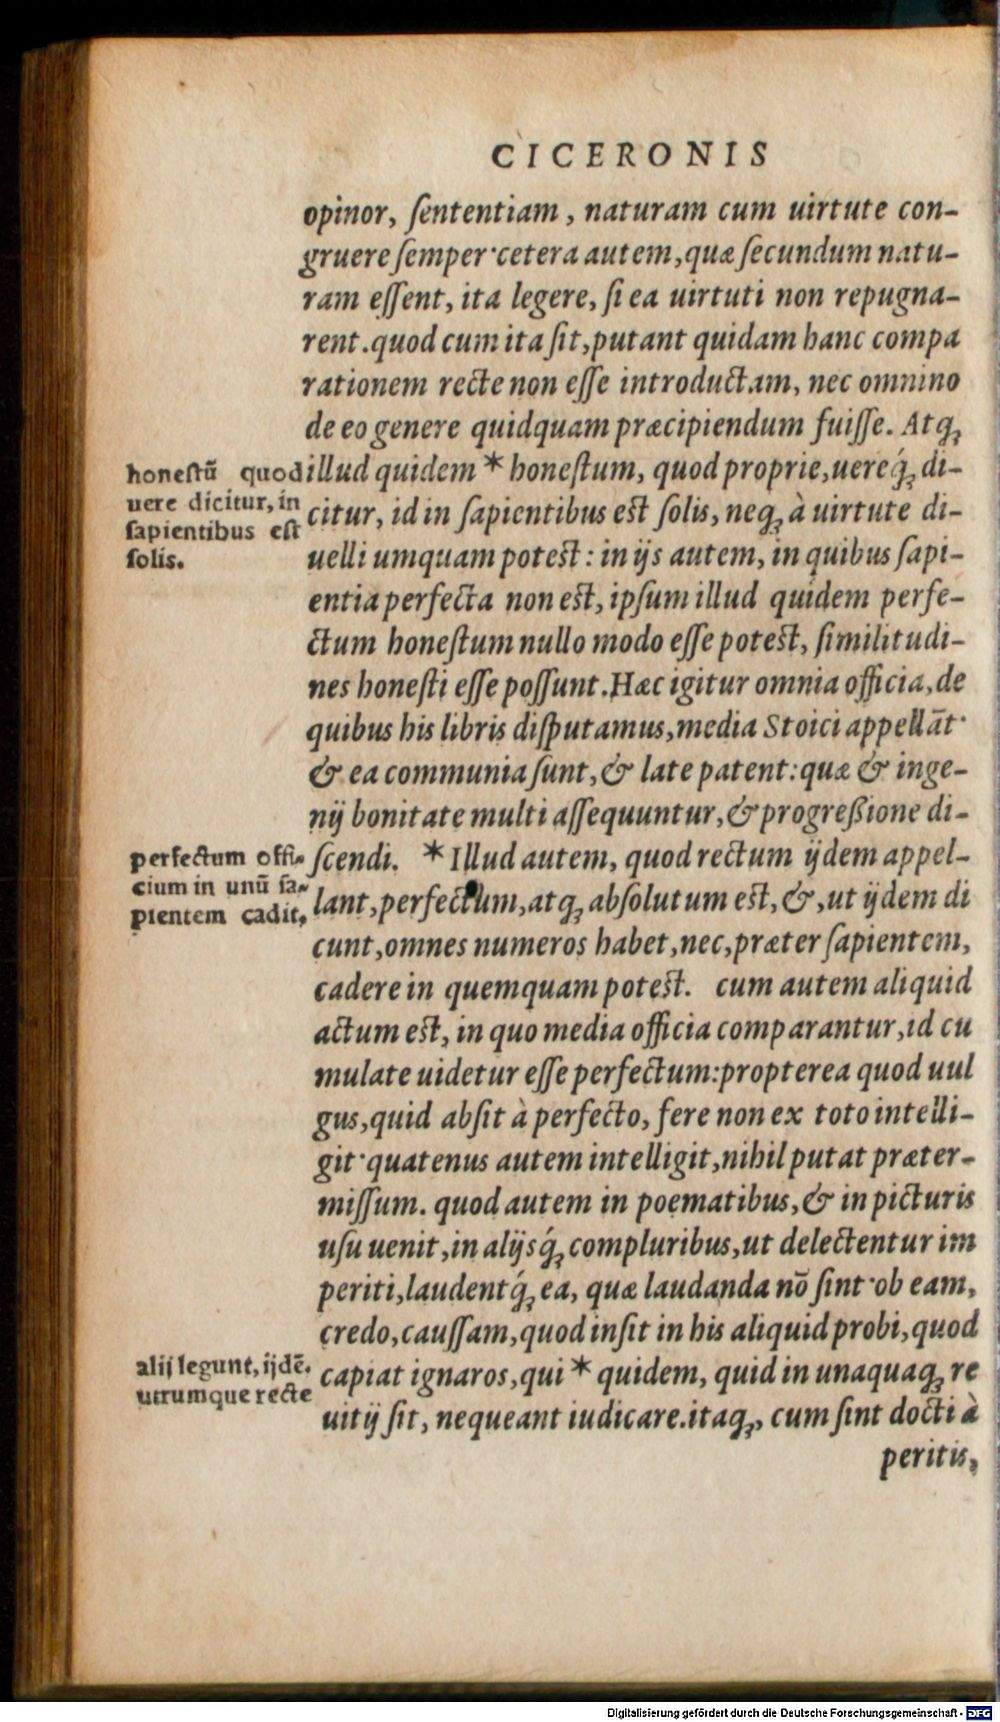 CICERONIS
opinor, ſententiam, naturam cum uirtute con-
gruere ſemper· cetera autem, quæ ſecundum natu-
ram eſſent, ita legere, ſi ea uirtuti non repugna-
rent. quod cum ita ſit, putant quidam hanc compa
rationem recte non eſſe introductam, nec omnino
de eo genere quidquam præcipiendum fuiſſe. Atq;
illud quidem * honeſtum, quod proprie, uereq́; di-
citur, id in ſapientibus est ſolis, neq; à uirtute di-
uelli umquam potest: in ijs autem, in quibus ſapi-
entia perfecta non est, ipſum illud quidem perfe-
ctum honeſtum nullo modo eſſe potest, ſimilitudi-
nes honeſti eſſe poſſunt. Hæc igitur omnia officia, de
quibus his libris diſputamus, media Stoici appellāt·
& ea communia ſunt, & late patent: quæ & inge-
nij bonitate multi aſſequuntur, & progreßione di-
ſcendi. * Illud autem, quod rectum ijdem appel-
lant, perfectum, atq; abſolutum est, &, ut ijdem di
cunt, omnes numeros habet, nec, præter ſapientem,
cadere in quemquam potest. cum autem aliquid
actum est, in quo media officia comparantur, id cu
mulate uidetur eſſe perfectum: propterea quod uul
gus, quid abſit à perfecto, fere non ex toto intelli-
git· quatenus autem intelligit, nihil putat præter-
miſſum. quod autem in poematibus, & in picturis
uſu uenit, in alijsq́; compluribus, ut delectentur im
periti, laudentq́; ea, quæ laudanda nō ſint· ob eam,
credo, cauſſam, quod inſit in his aliquid probi, quod
capiat ignaros, qui * quidem, quid in unaquaq; re
uitij ſit, nequeant iudicare. itaq;, cum ſint docti à
peritis,
honeſtū quod
uere dicitur, in
ſapientibus eſt
ſolis.
perfectum offi-
cium in unū ſa-
pientem cadit.
alij legunt, ijdē.
utrumque recte
Digitalisierung gefördert durch die Deutsche Forschungsgemeinschaft - DFG